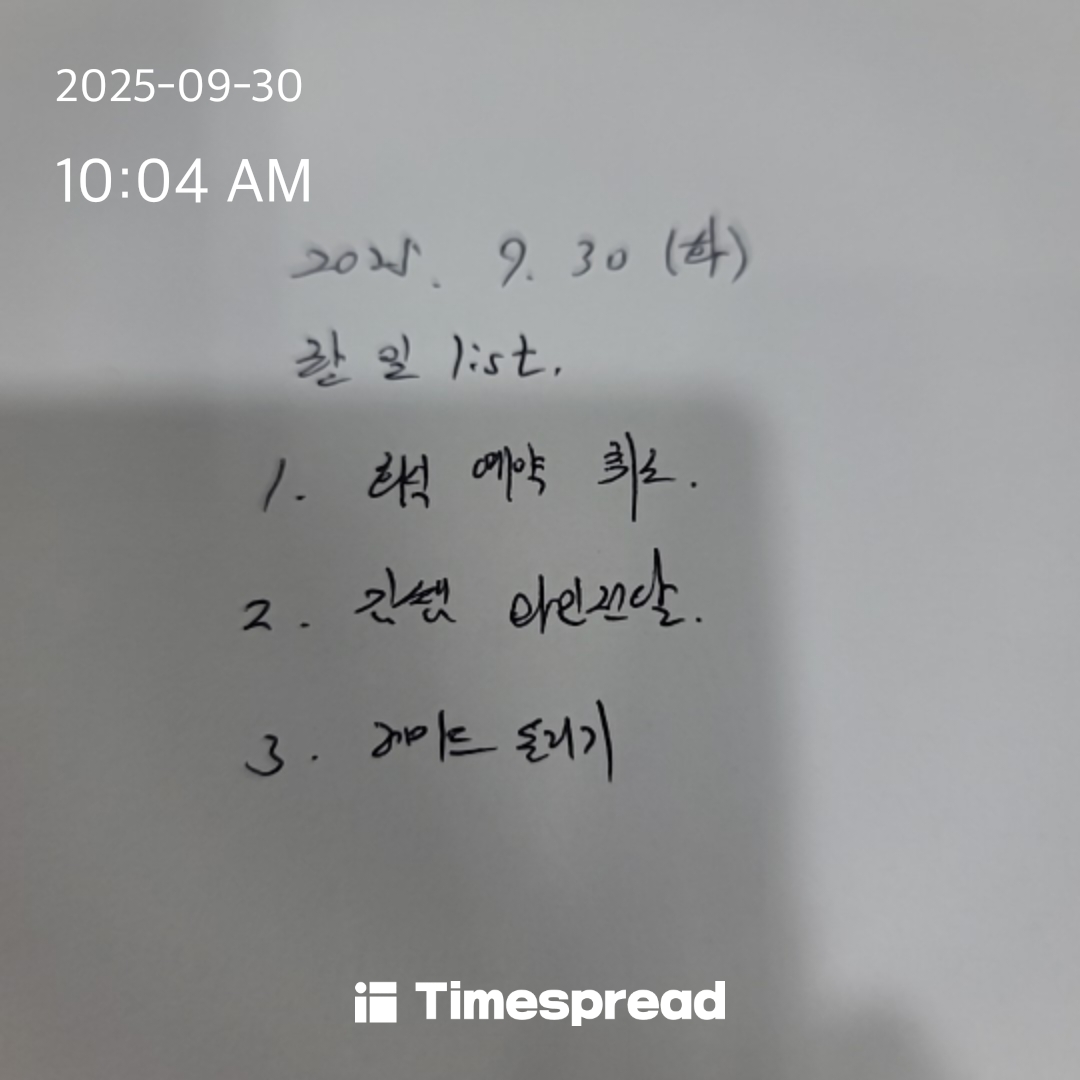 2025-09-30
10:04 AM
2025. 9. 30 (화)
할 일 list.
1. 희석 예약 취소.
2. 간쌤 와인전달.
3. 레이드 돌리기
Timespread